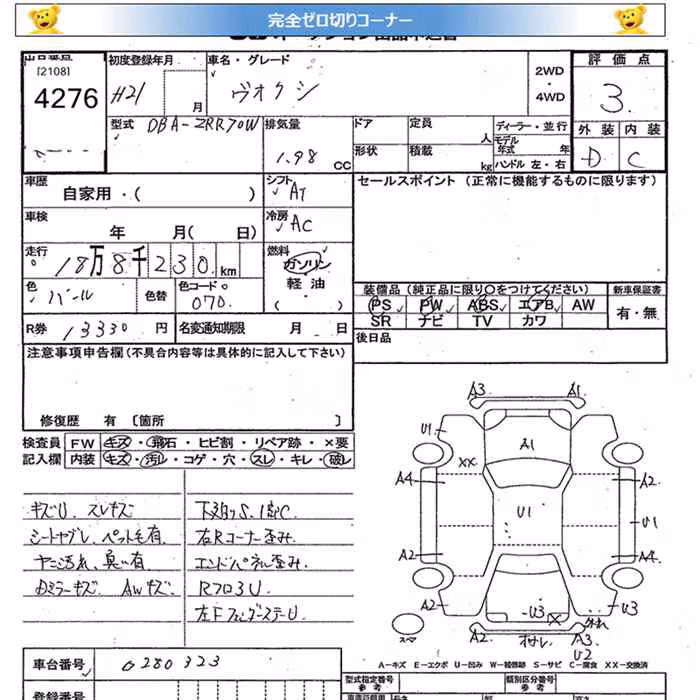 完全ゼロ切りコーナー
[2108]
4276
初度登録年月
H21 月
車名・グレード
ヴォクシ
2WD
・
4WD
評価点
3
外装 内装
D C
型式 DBA-ZRR70W
排気量
1.98 CC
ドア 定員 人
形状 積載 kg
ディーラー・並行
モデル年式 年
ハンドル 左・右
車歴
自家用・( )
シフト AT
セールスポイント (正常に機能するものに限ります)
車検
年 月( 日)
冷房 AC
走行
18万8千230km
燃料
ガソリン
・
軽油
( )
色 パール
色替
色コード
070
装備品(純正品に限り○をつけてください)
新車保証書
PS PW ABS エアB AW
SR ナビ TV カワ
有・無
R券 13330円
名変通知期限 月 日
後日品
注意事項申告欄(不具合内容等は具体的に記入して下さい)
修復歴 有 [箇所 ]
検査員 FW キズ・飛石・ヒビ割・リペア跡・×要
記入欄 内装 キズ・汚れ・コゲ・穴・スレ・キレ・破レ
キズU、スレキズ
シートヤブレ、ペット毛有
ヤニ汚れ、臭い有
ミラーキズ AWキズ
下廻りS、1部C
右Rコーナー歪み
エンドパネル歪み
Rフロ3U
左Fフェンダーステー U
A3 A1
U1 A1
XX
A4 A2
U1 U1
A2 A4
A2 U3 X U3
A2 A3
U2
スペア
A-キズ E-エクボ U-凹み W-補修跡 S-サビ C-腐食 XX-交換済
車台番号 0280323
登録番号
型式指定番号
参考
類別区分番号
参考